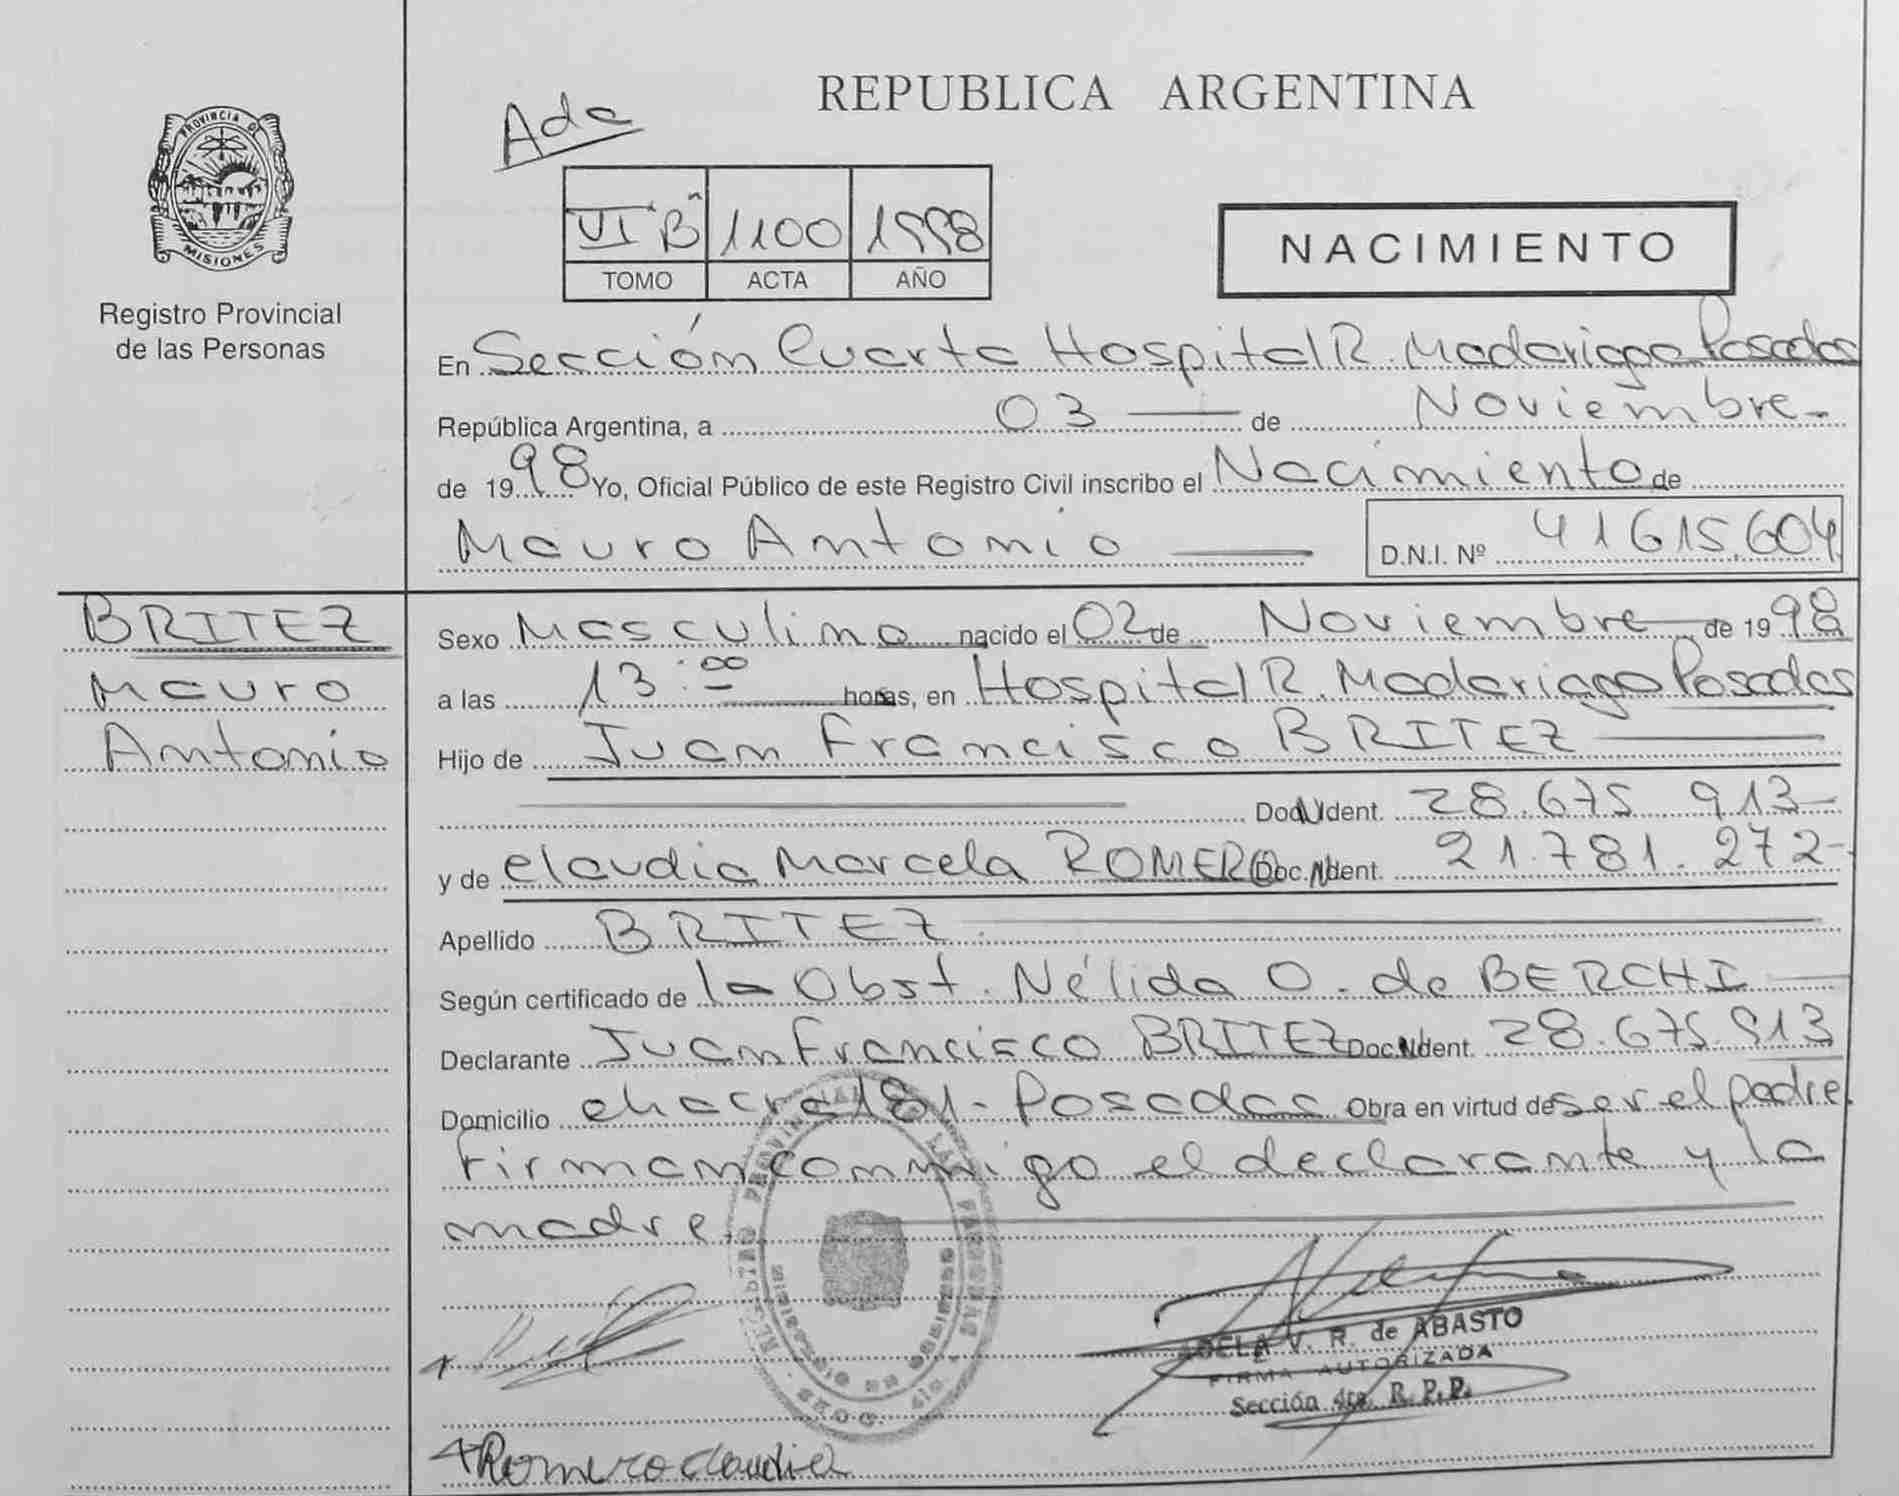 PROVINCIA DE
MISIONES
Registro Provincial
de las Personas
REPUBLICA ARGENTINA
Ada
VI "B" 1100 1998
TOMO ACTA AÑO
NACIMIENTO
En Sección Cuarta Hospital R. Madariaga Posadas
República Argentina, a 03 de Noviembre
de 1998 Yo, Oficial Público de este Registro Civil inscribo el Nacimiento de
Mauro Antonio D.N.I. Nº 41615.604
BRITEZ
Mauro
Antonio
Sexo Masculino nacido el 02 de Noviembre de 1998
a las 13:00 horas, en Hospital R. Madariaga Posadas
Hijo de Juan Francisco BRITEZ
Doc. Ident. 28.675 913
y de Claudia Marcela ROMERO Doc. Ident. 21.781.272
Apellido BRITEZ
Según certificado de la Obst. Nélida O. de BERCHI
Declarante Juan Francisco BRITEZ Doc. Ident. 28.675.913
Domicilio chacra 181 - Posadas Obra en virtud de ser el padre
firman conmigo el declarante y la
madre.
ADELA V. R. de ABASTO
FIRMA AUTORIZADA
Sección 4ta. R. P. P.
Romero Claudia